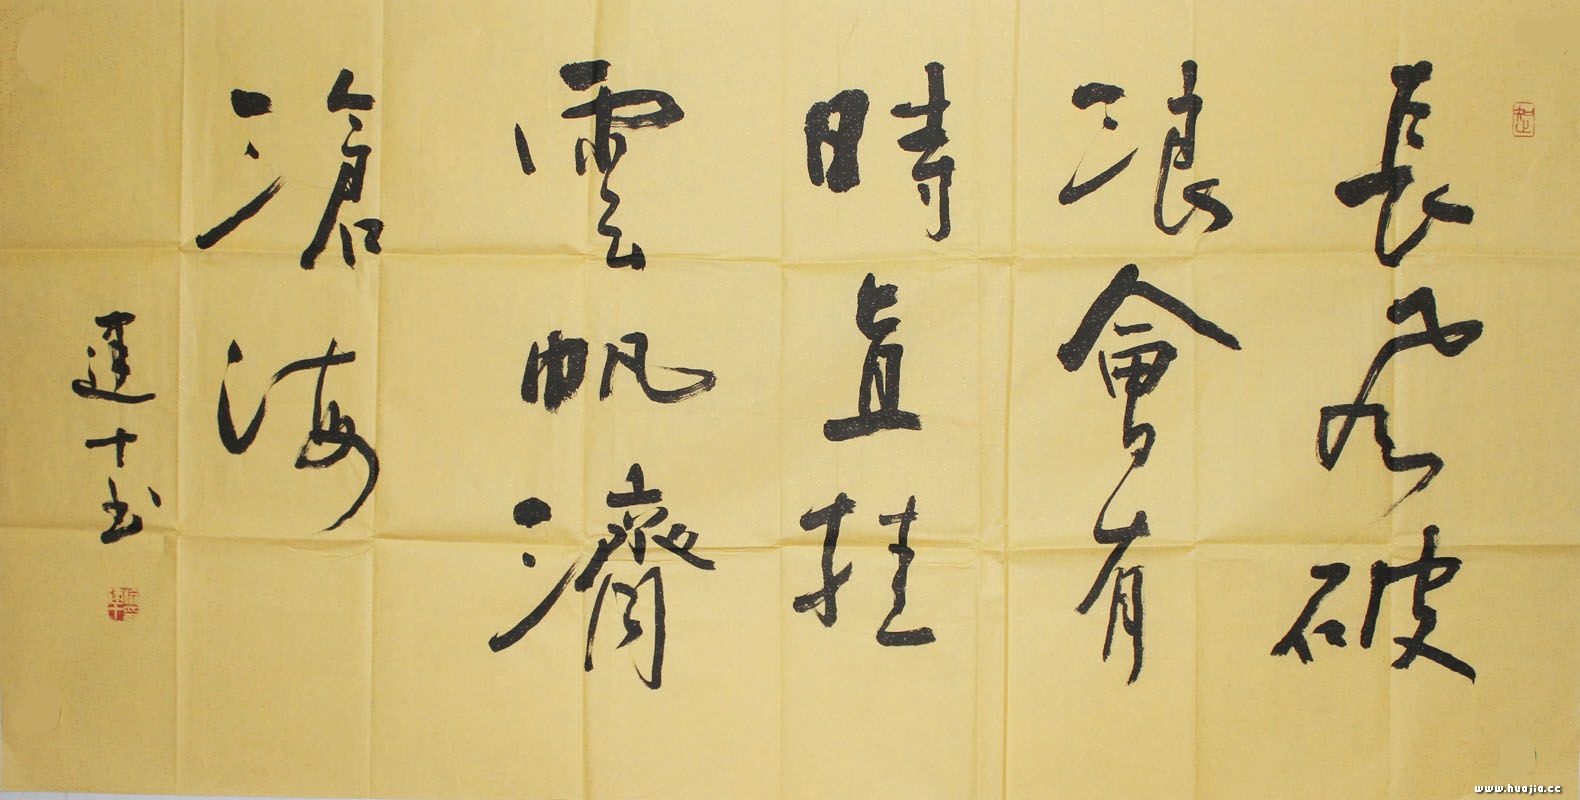 長風破
浪會有
時直挂
雲帆濟
滄海
運十书
www.huajia.cc